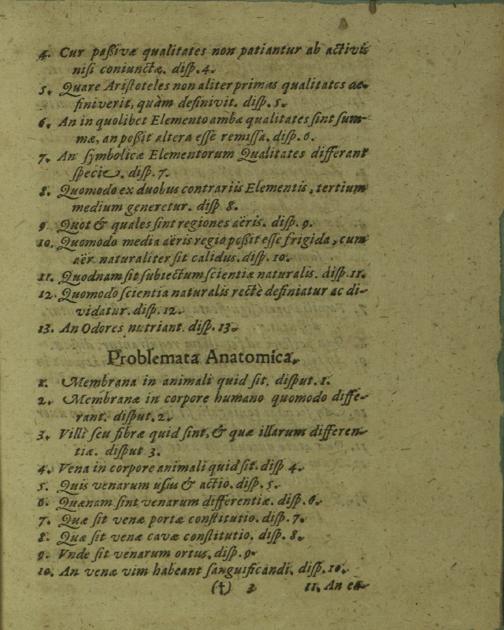 4. Cur passivæ qualitates non patiantur ab activis
nisi coniunctæ. disp. 4.
5. Quare Aristoteles non aliter primas qualitates de-
finiverit, quàm definivit. disp. 5.
6. An in quolibet Elemento ambæ qualitates sint sum-
mæ, an possit altera esse remissa. disp. 6.
7. An symbolicæ Elementorum Qualitates differant
specie. disp. 7.
8. Quomodo ex duobus contrariis Elementis, tertium
medium generetur. disp. 8.
9. Quot & quales sint regiones aëris. disp. 9.
10. Quomodo media aëris regio possit esse frigida, cum
aër naturaliter sit calidus. disp. 10.
11. Quodnam sit subiectum scientiæ naturalis. disp. 11.
12. Quomodo scientia naturalis rectè definiatur ac di-
vidatur. disp. 12.
13. An Odores nutriant. disp. 13.
Problemata Anatomica.
1. Membrana in animali quid sit. disput. 1.
2. Membranæ in corpore humano quomodo diffe-
rant. disput. 2.
3. Villi seu fibræ quid sint, & quæ illarum differen-
tiæ. disput 3.
4. Vena in corpore animali quid sit. disp 4.
5. Quis venarum usus & actio. disp. 5.
6. Quænam sint venarum differentiæ. disp. 6.
7. Quæ sit venæ portæ constitutio. disp. 7.
8. Quæ sit venæ cavæ constitutio. disp. 8.
9. Vnde sit venarum ortus. disp. 9.
10. An venæ vim habeant sanguificandi. disp. 10.
(†) 2 11. An ea-